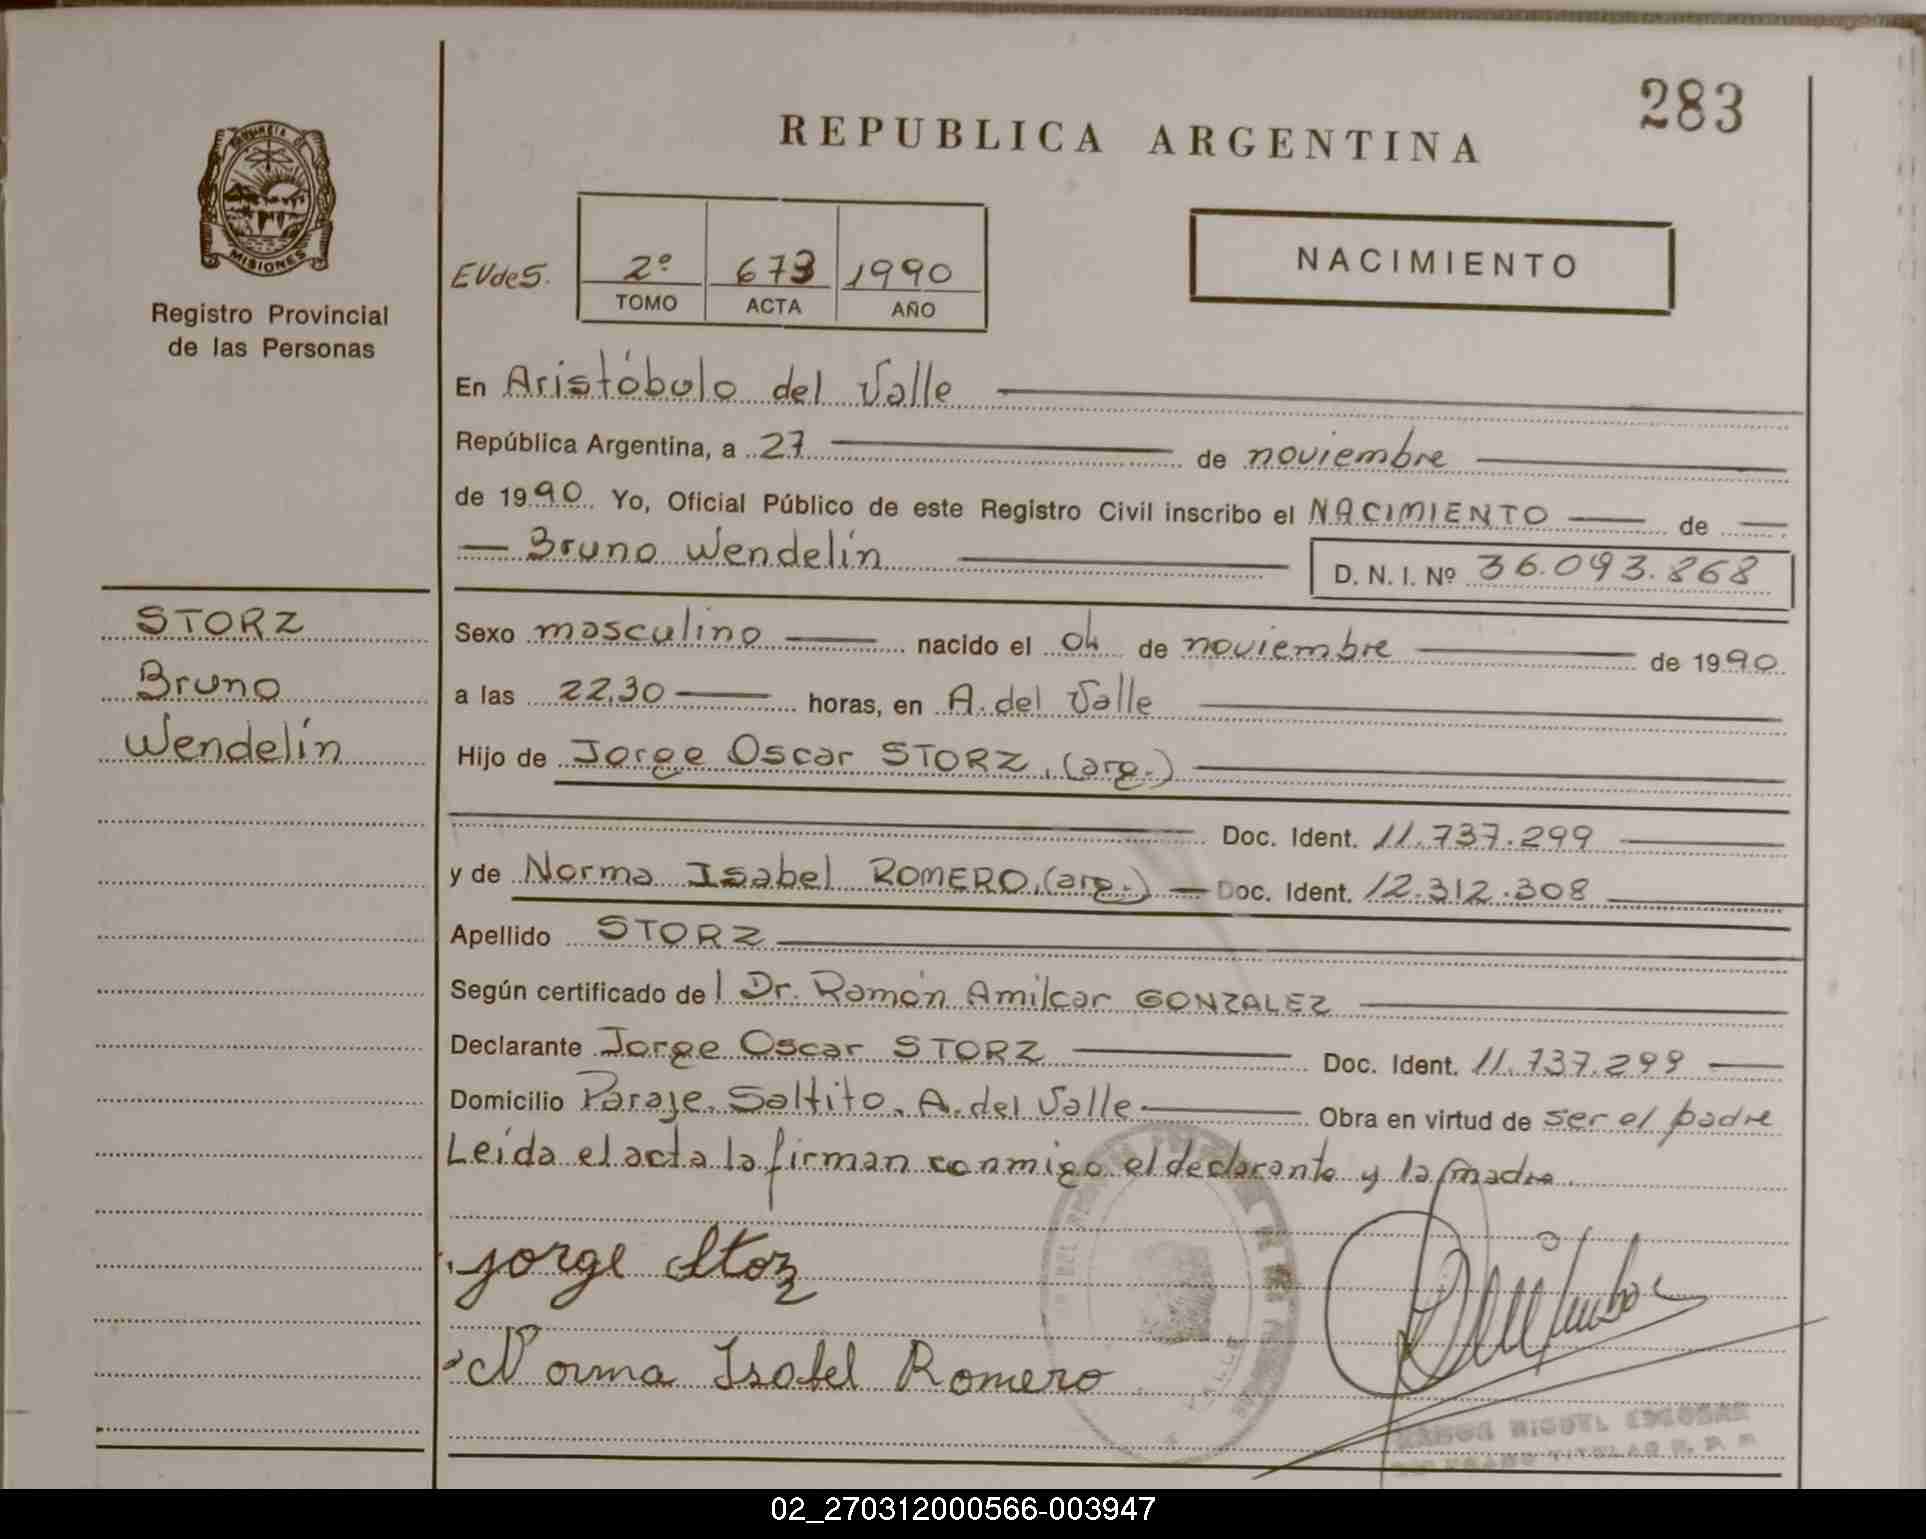 283
REPUBLICA ARGENTINA
PROVINCIA DE
MISIONES
Registro Provincial
de las Personas
EVdeS. 2º 673 1990
TOMO ACTA AÑO
NACIMIENTO
En Aristóbulo del Valle
República Argentina, a 27 de noviembre
de 1990. Yo, Oficial Público de este Registro Civil inscribo el NACIMIENTO de
Bruno Wendelín
D. N. I. Nº 36.093.868
STORZ
Bruno
Wendelín
Sexo masculino nacido el 04 de noviembre de 1990
a las 22,30 horas, en A. del Valle
Hijo de Jorge Oscar STORZ, (arg.)
Doc. Ident. 11.737.299
y de Norma Isabel ROMERO, (arg.) Doc. Ident. 12.312.308
Apellido STORZ
Según certificado del Dr. Ramón Amilcar GONZALEZ
Declarante Jorge Oscar STORZ Doc. Ident. 11.737.299
Domicilio Paraje Saltito, A. del Valle Obra en virtud de ser el padre
Leída el acta la firman conmigo el declarante y la madre.
Jorge Stoz
Norma Isabel Romero
RAMON MIGUEL ESCOBAR
02_270312000566-003947